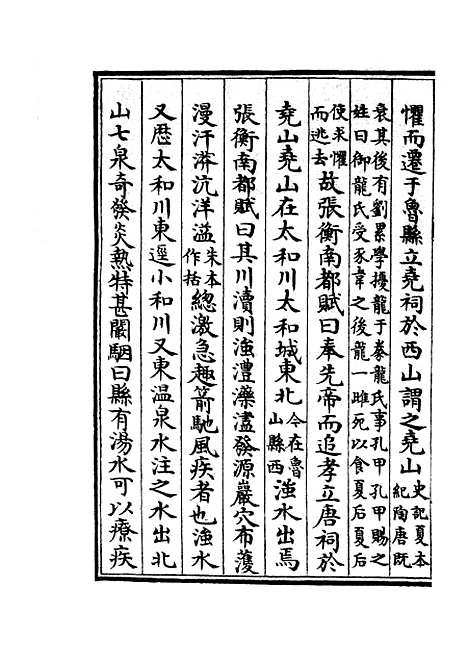 懼而遷于魯縣立堯祠於西山謂之堯山史記夏本紀陶唐旣
衰其後有劉累學擾龍于豢龍氏事孔甲孔甲賜之姓曰御龍氏受豕韋之後龍一雌死以食夏后夏后
使求懼而逃去故張衡南都賦曰奉先帝而追孝立唐祠於
堯山堯山在太和川太和城東北今在魯山縣西滍水出焉
張衡南都賦曰其川瀆則滍澧藻濜發源巖穴布濩
漫汗漭沆洋溢朱本作括總激急趣箭馳風疾者也滍水
又歴太和川東逕小和川又東温泉水注之水出北
山七泉奇發炎熱特甚闞駰曰縣有湯水可以療疾